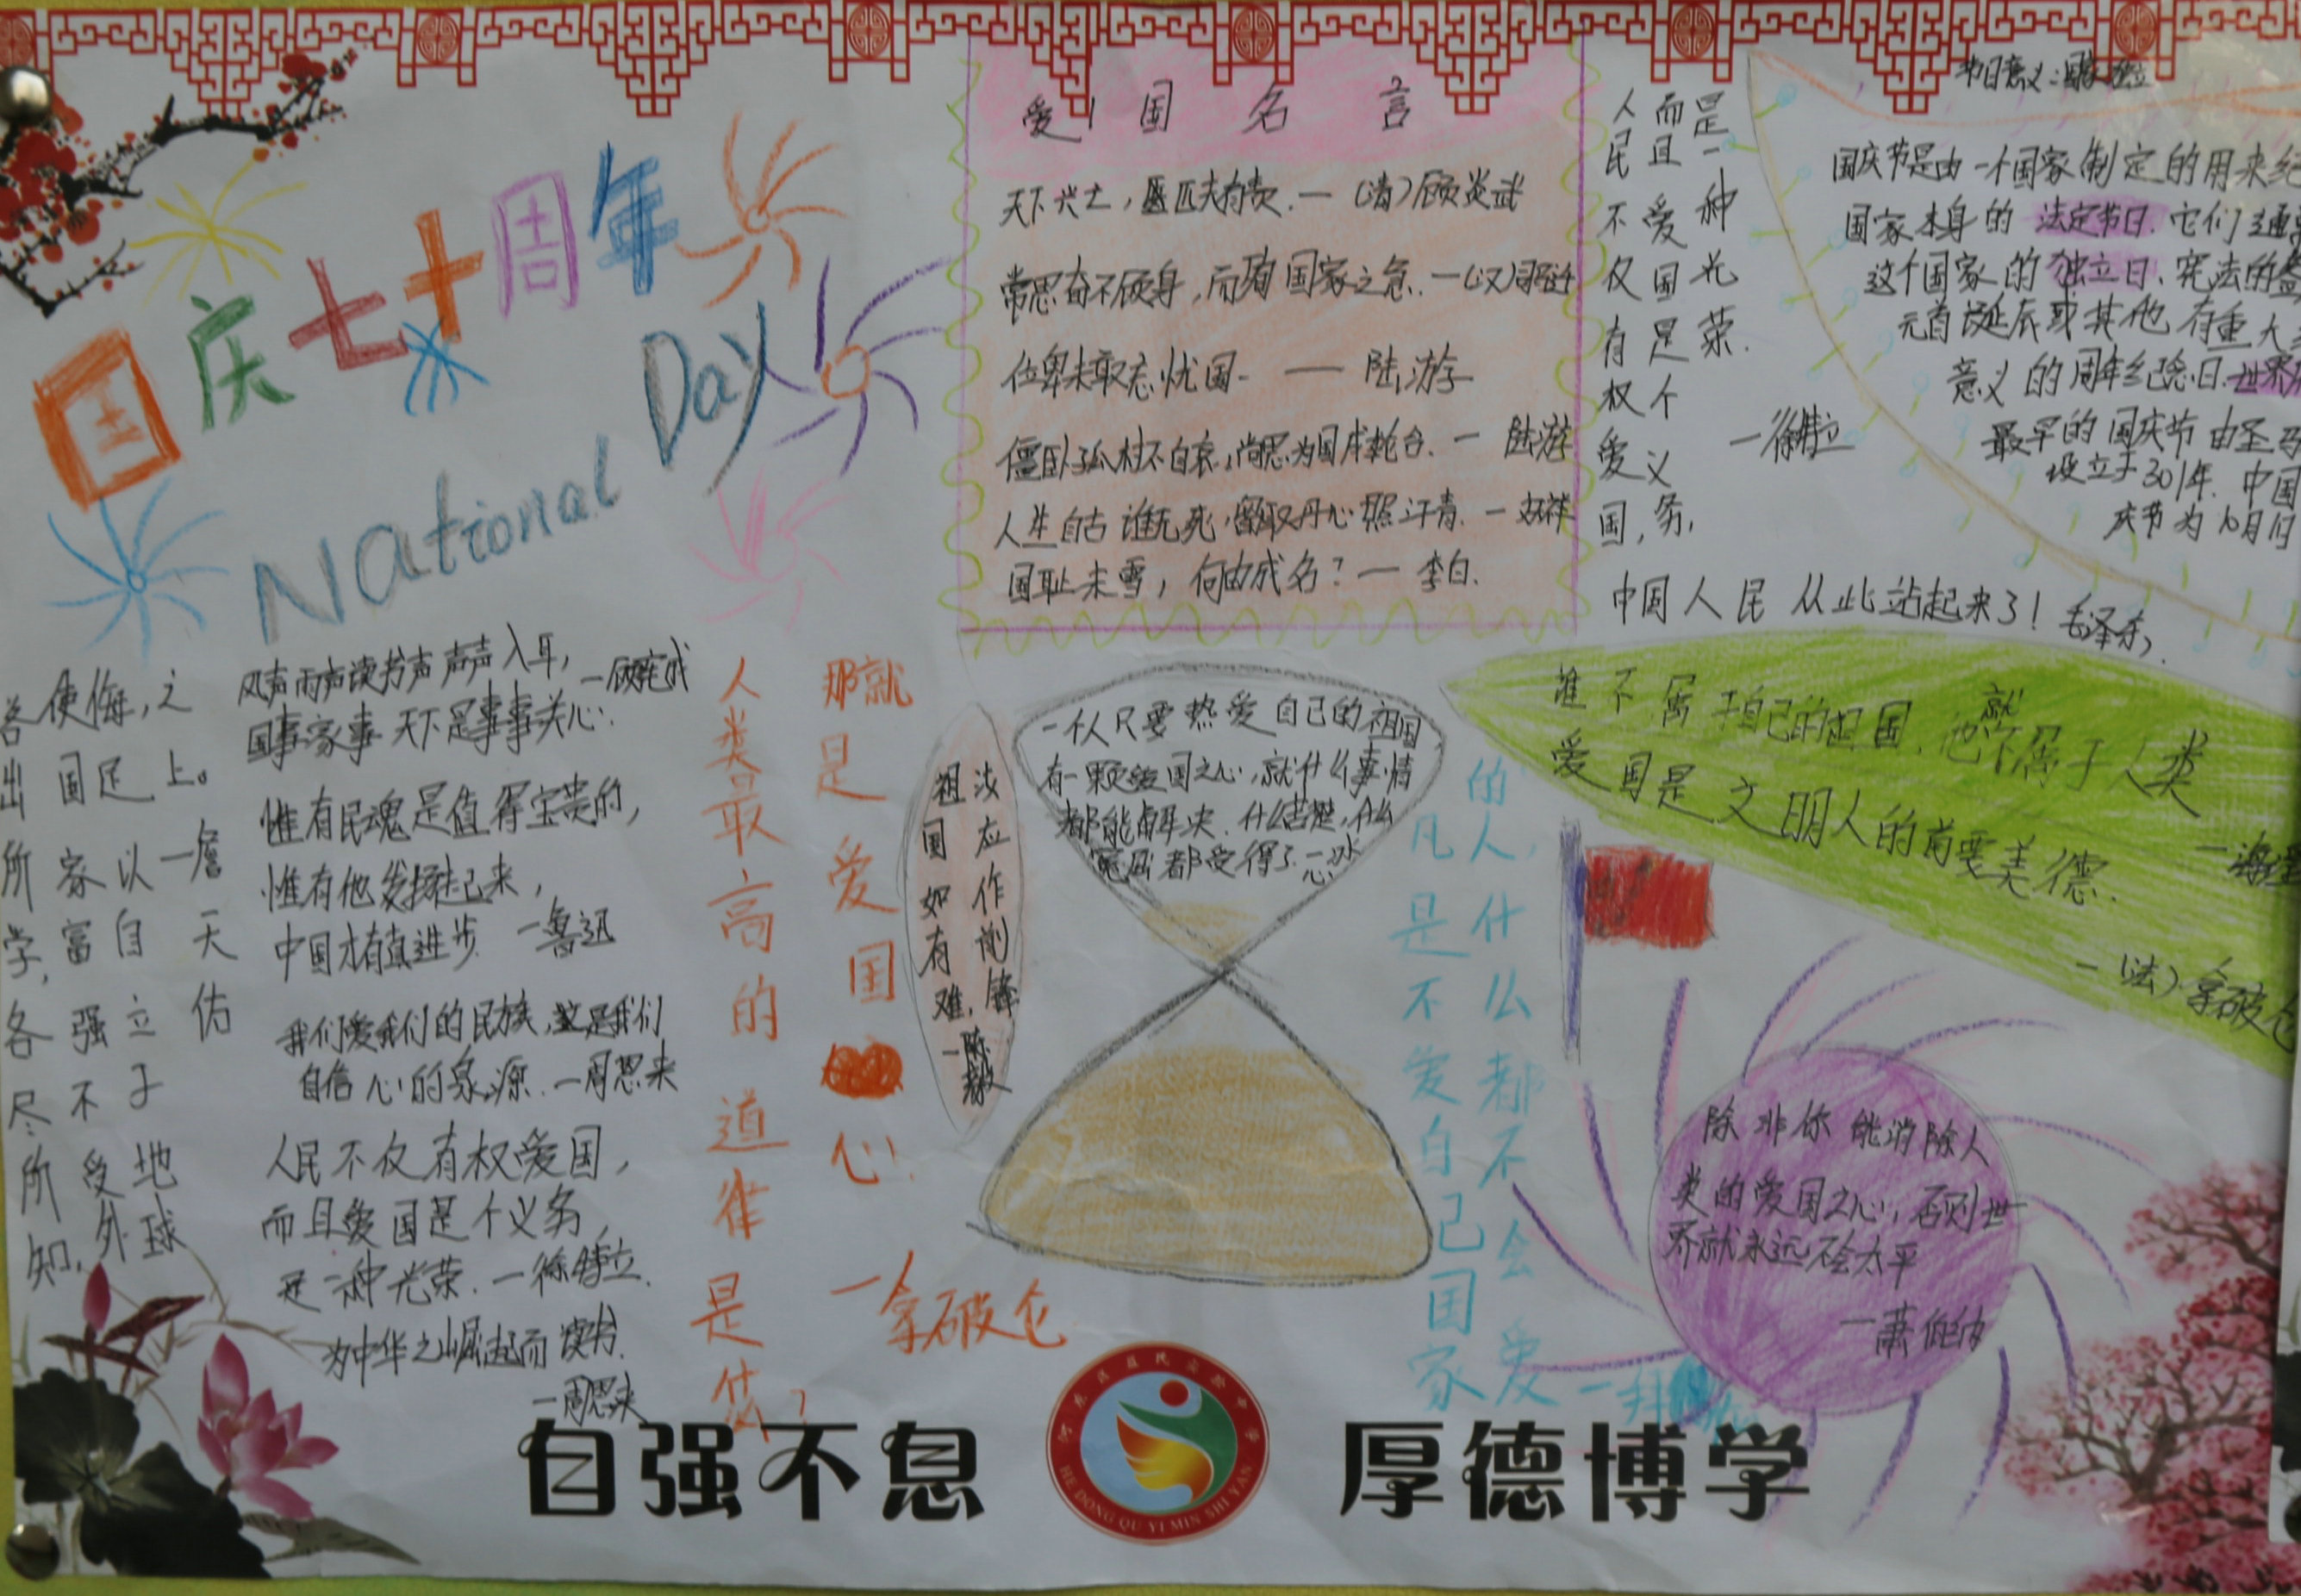 国庆七十周年
National Day
爱国名言
天下兴亡，匹夫有责.—(清)顾炎武
常思奋不顾身，而有国家之急.—(汉)司马迁
位卑未敢忘忧国.——陆游
僵卧孤村不自哀，尚思为国戍轮台.—陆游
人生自古谁无死，留取丹心照汗青.—文天祥
国耻未雪，何由成名？—李白.
人民不仅有权爱国，
而且爱国是个义务，
是一种光荣.
—徐特立
中国人民从此站起来了！毛泽东，
节日意义：国家独立
国庆节是由一个国家制定的用来纪
国家本身的法定节日.它们通常
这个国家的独立日、宪法的签
元首诞辰或其他有重大
意义的周年纪念日.世界
最早的国庆节由圣马
设立于301年.中国
庆节为10月1日
各出所学，各尽所知，
使国家富强不受外
侮，足以自立于地球
之上。—詹天佑
风声雨声读书声声声入耳，
国事家事天下是事事关心.
—顾宪成
惟有民魂是值得宝贵的，
惟有他发扬起来，
中国才有真进步.—鲁迅
我们爱我们的民族，这是我们
自信心的泉源.—周恩来
人民不仅有权爱国，
而且爱国是个义务，
是一种光荣.—徐特立.
为中华之崛起而读书.
—周恩来
人类最高的道德是什么？
那就是爱国心.
—拿破仑
祖国如有难，
汝应作前锋
—陈毅
一个人只要热爱自己的祖国
有一颗爱国之心，就什么事情
都能解决.什么苦楚，什么
冤屈都受得了.—冰心
凡是不爱自己国家
的人，什么都不会爱
谁不属于自己的起国，他就不属于人类
爱国是文明人的首要美德.
—(法)拿破仑
除非你能消除人
类的爱国之心，否则世
界就永远不会太平
—萧伯纳
自强不息
厚德博学
HE DONG QU YI MIN SHI YAN